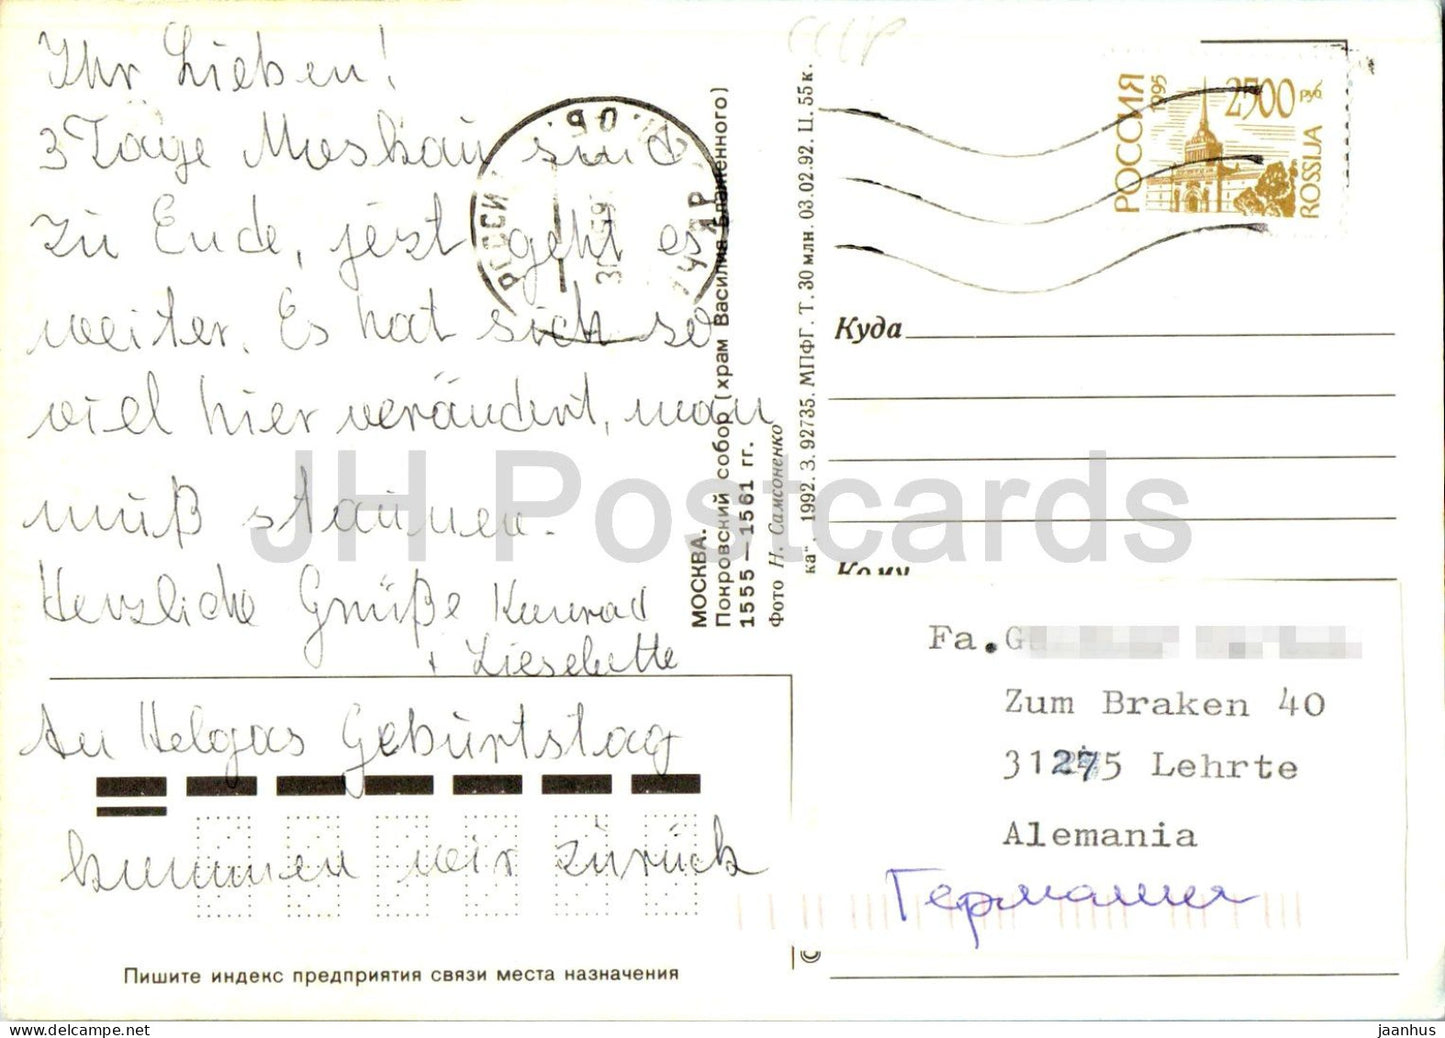 СССР
Ihr Lieben!
3 Tage Moskau sind
zu Ende, jetzt geht es
weiter. Es hat sich so
viel hier verändert, man
muß staunen.
Herzliche Grüße Konrad
+ Lieselotte
An Helgas Geburtstag
kommen wir zurück
Пишите индекс предприятия связи места назначения
МОСКВА.
Покровский собор (храм Василия Блаженного)
1555—1561 гг.
Фото Н. Самсоненко
ка". 1992. З. 92735. МПФГ. Т. 30 млн. 03.02.92. Ц. 55 к.
©
РОССИЯ
1995
2500 руб.
ROSSIJA
Куда
Кому
Fa. G
Zum Braken 40
31275 Lehrte
Alemania
Германия
JH Postcards
www.delcampe.net
jaanhus